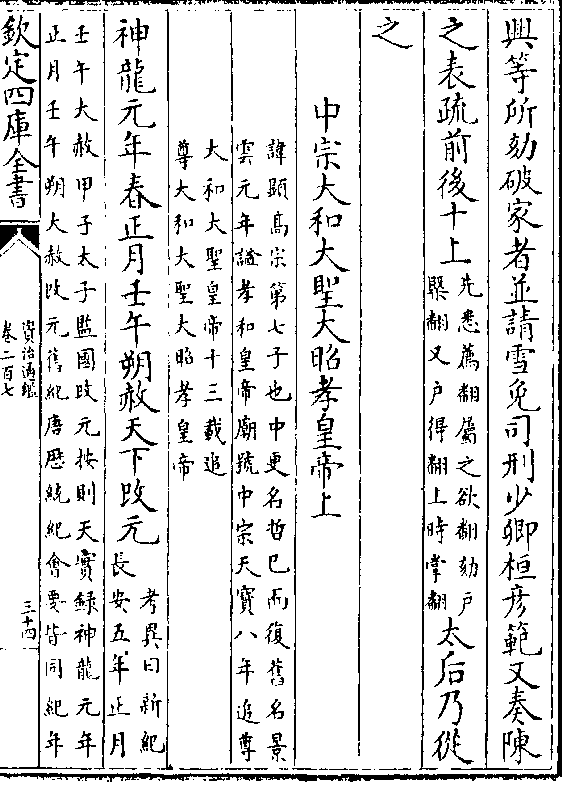 興等所劾破家者並請雪免司刑少卿桓彦範又奏陳
之表疏前後十上
先悉薦翻屬之欲翻劾戶
槩翻又戶得翻上時掌翻
太后乃從
之
中宗大和大聖大昭孝皇帝上
諱顯髙宗第七子也中更名哲已而復舊名景
雲元年諡孝和皇帝廟號中宗天寳八年追尊
大和大聖皇帝十三載追
尊大和大聖大昭孝皇帝
神龍元年春正月壬午朔赦天下改元
考異曰新紀
長安五年正月
壬午大赦甲子太子監國改元按則天實錄神龍元年
正月壬午朔大赦改元舊紀唐歴統紀會要皆同紀年
欽定四庫全書
資治通鑑
卷二百七
三十四